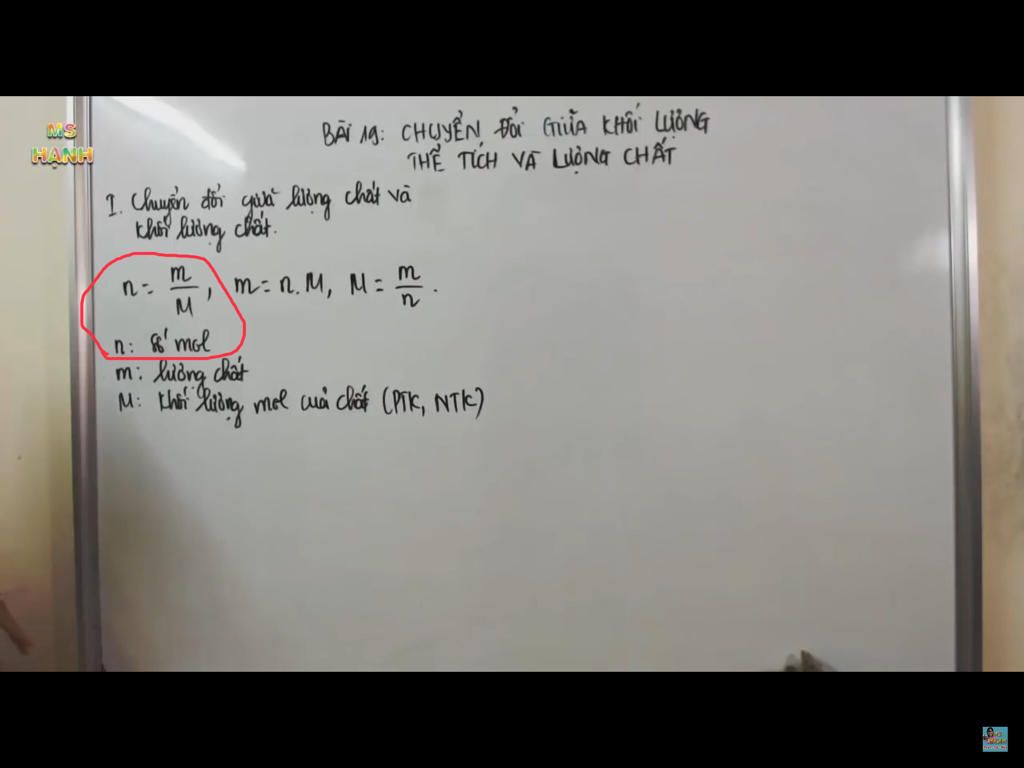 MS
HẠNH
BÀI 19: CHUYỂN ĐỔI GIỮA KHỐI LƯỢNG
THỂ TÍCH VÀ LƯỢNG CHẤT
I. Chuyển đổi giữa lượng chất và
khối lượng chất.
n = m/M, m = n.M, M = m/n.
n: số mol
m: lượng chất
M: Khối lượng mol của chất (PTK, NTK)